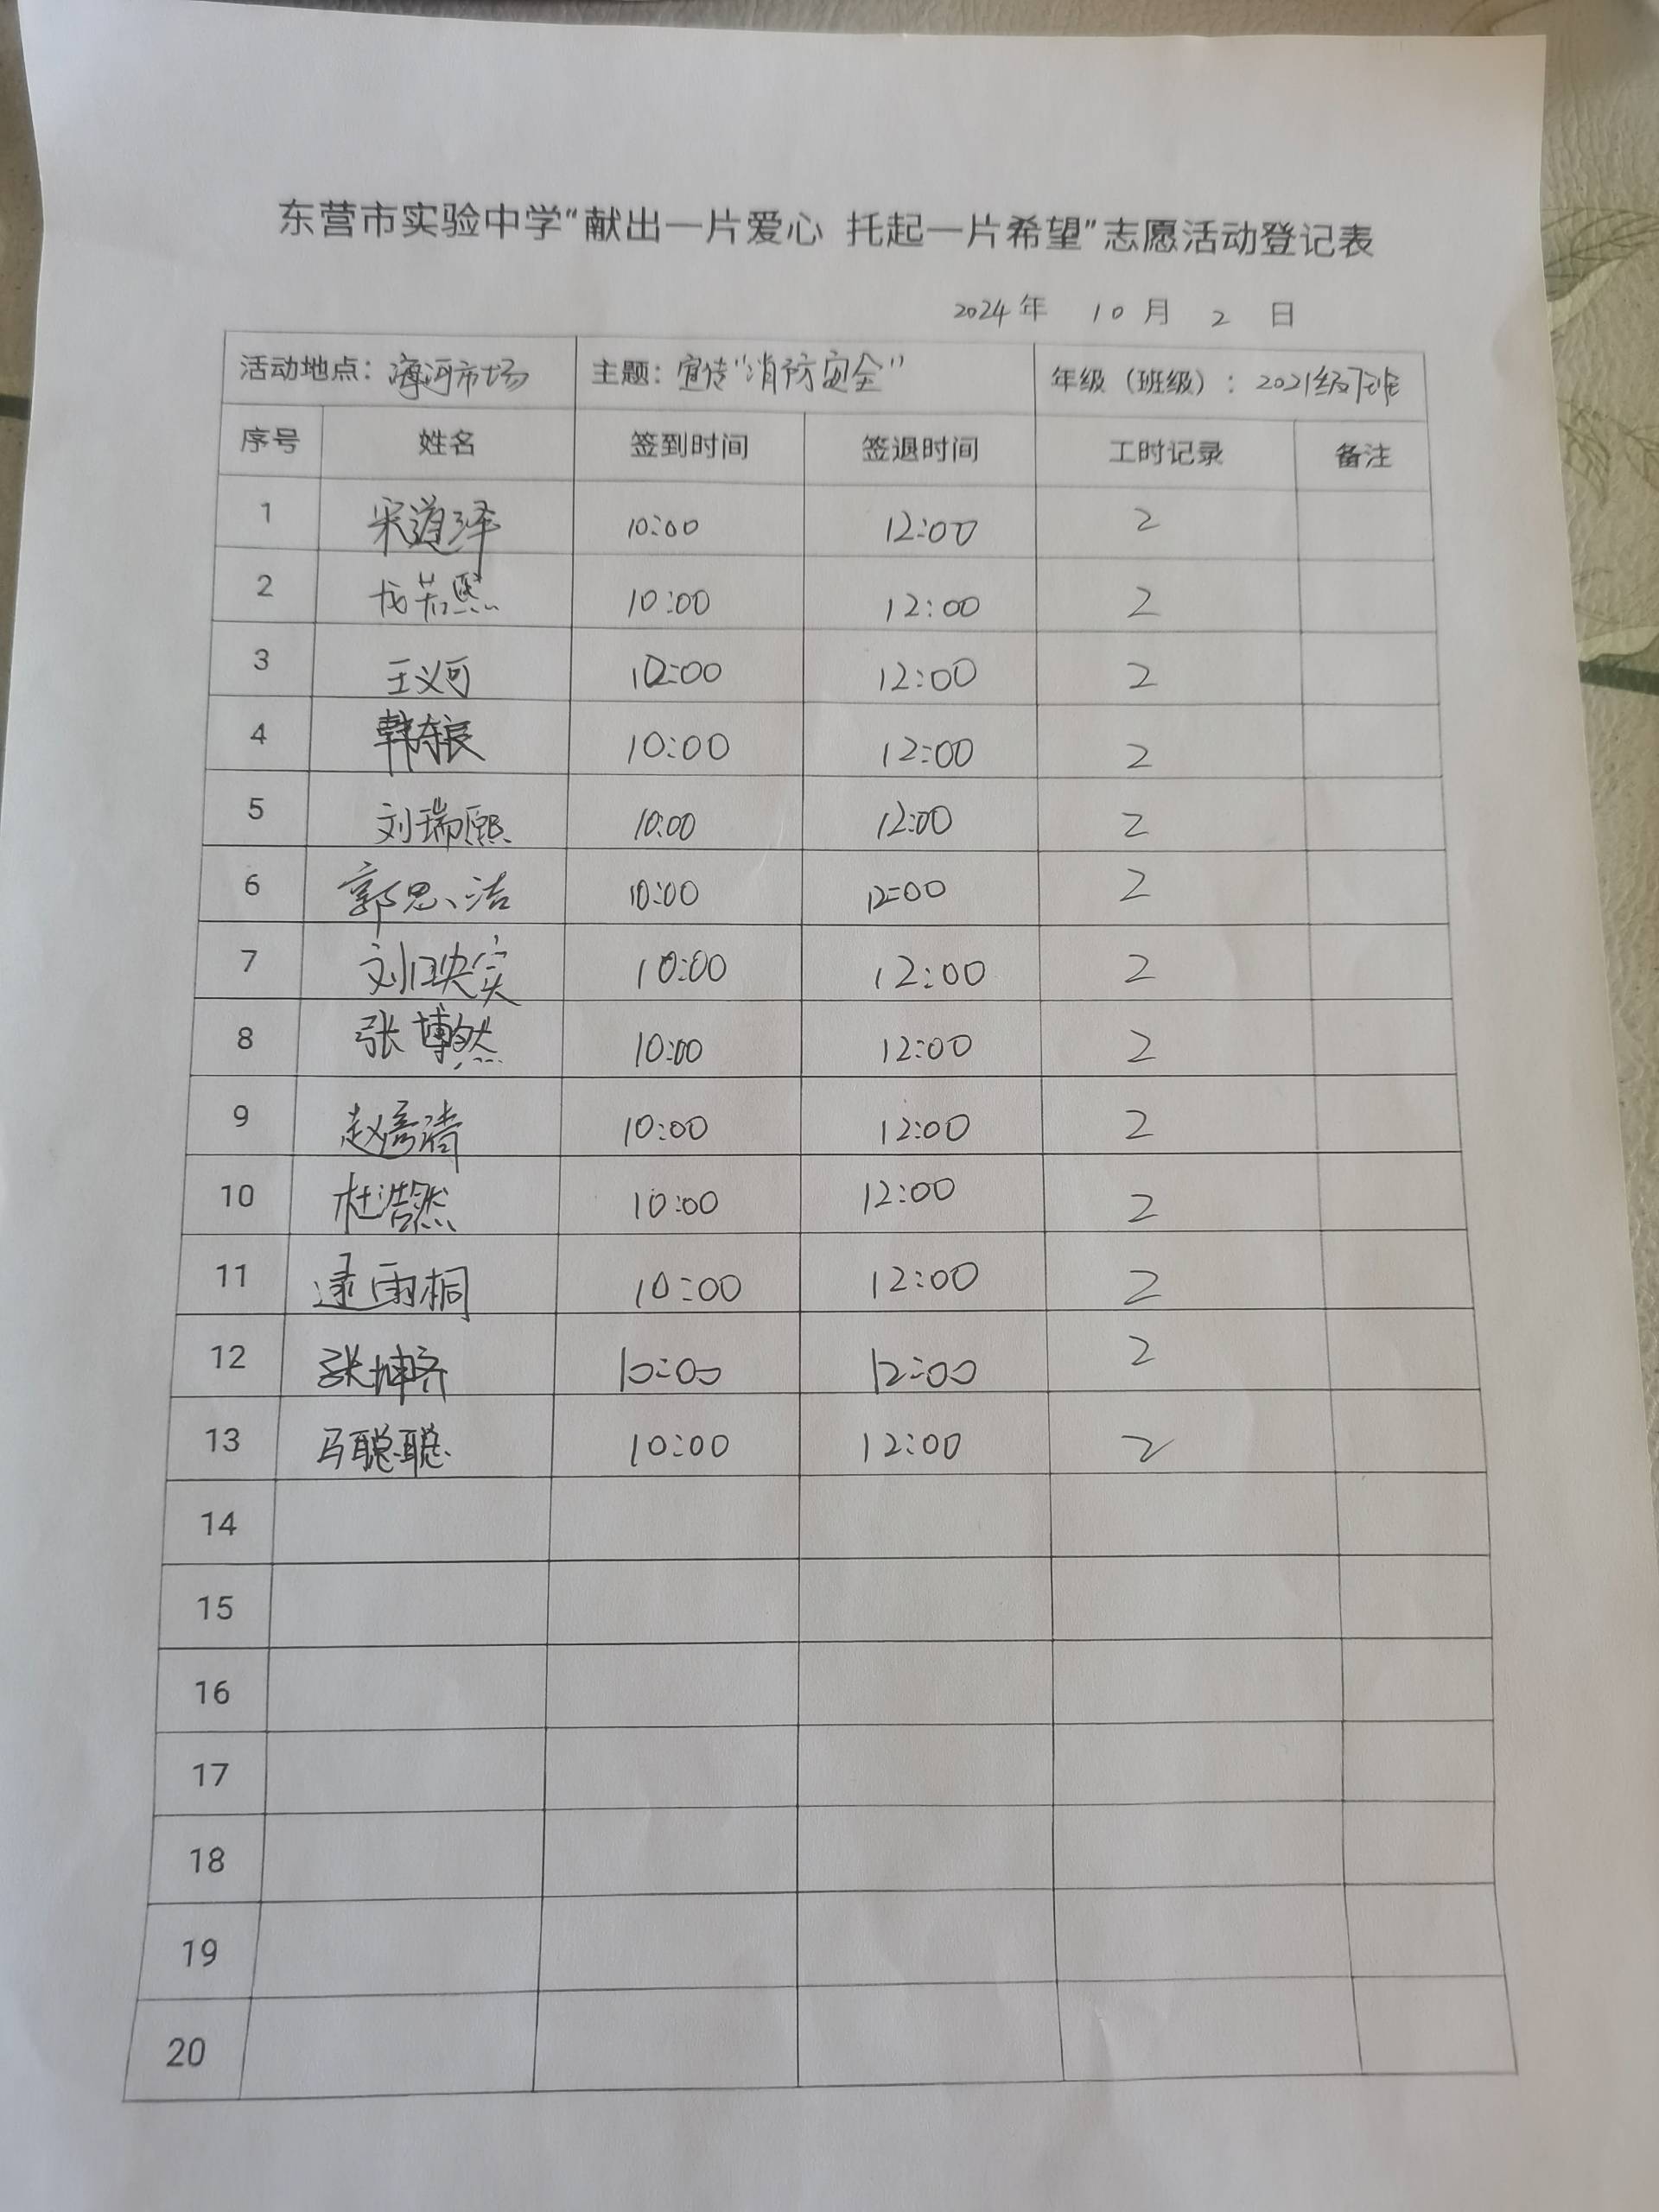 东营市实验中学“献出一片爱心 托起一片希望”志愿活动登记表
2024年 10月 2 日
活动地点：海河市场 主题：宣传“消防安全” 年级（班级）：2021级 班
序号 姓名 签到时间 签退时间 工时记录 备注
1 宋道泽 10:00 12:00 2
2 若熙 10:00 12:00 2
3 王义可 12:00 2
4 韩东辰 10:00 12:00 2
5 刘瑞熙 10:00 12:00 2
6 郭思洁 10:00 12:00 2
7 刘映实 10:00 12:00 2
8 张博然 10:00 12:00 2
9 赵彦清 10:00 12:00 2
10 杜浩然 10:00 12:00 2
11 逯雨桐 10:00 12:00 2
12 张坤齐 10:00 12:00 2
13 马聪聪 10:00 12:00 2
14
15
16
17
18
19
20